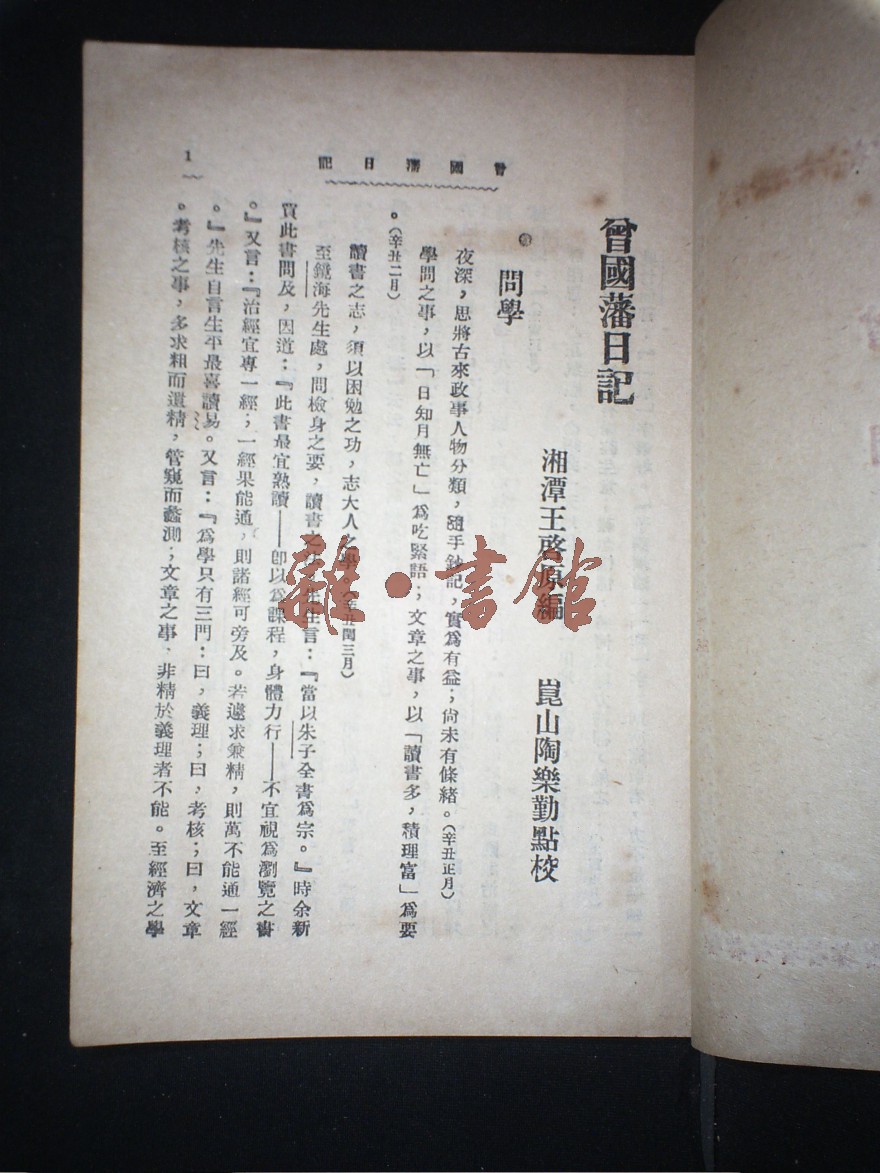 曾國藩日記
1
曾國藩日記
湘潭王啓原編 崑山陶樂勤點校
問學
夜深，思將古來政事人物分類，隨手鈔記，實爲有益；尙未有條緒。（辛丑正月）
學問之事，以「日知月無亡」爲吃緊語；文章之事，以「讀書多，積理富」爲要
。（辛丑二月）
讀書之志，須以困勉之功，志大人之學。（辛丑閏三月）
至鏡海先生處，問檢身之要，讀書之法。先生言：『當以朱子全書爲宗。』時余新
買此書問及，因道：『此書最宜熟讀——卽以爲課程，身體力行——不宜視爲瀏覽之書
。』又言：『治經宜專一經；一經果能通，則諸經可旁及。若遽求兼精，則萬不能通一經
。』先生自言生平最喜讀易。又言：『爲學只有三門：曰，義理；曰，考核；曰，文章
。考核之事，多求粗而遺精，管窺而蠡測；文章之事、非精於義理者不能。至經濟之學
雜·書館